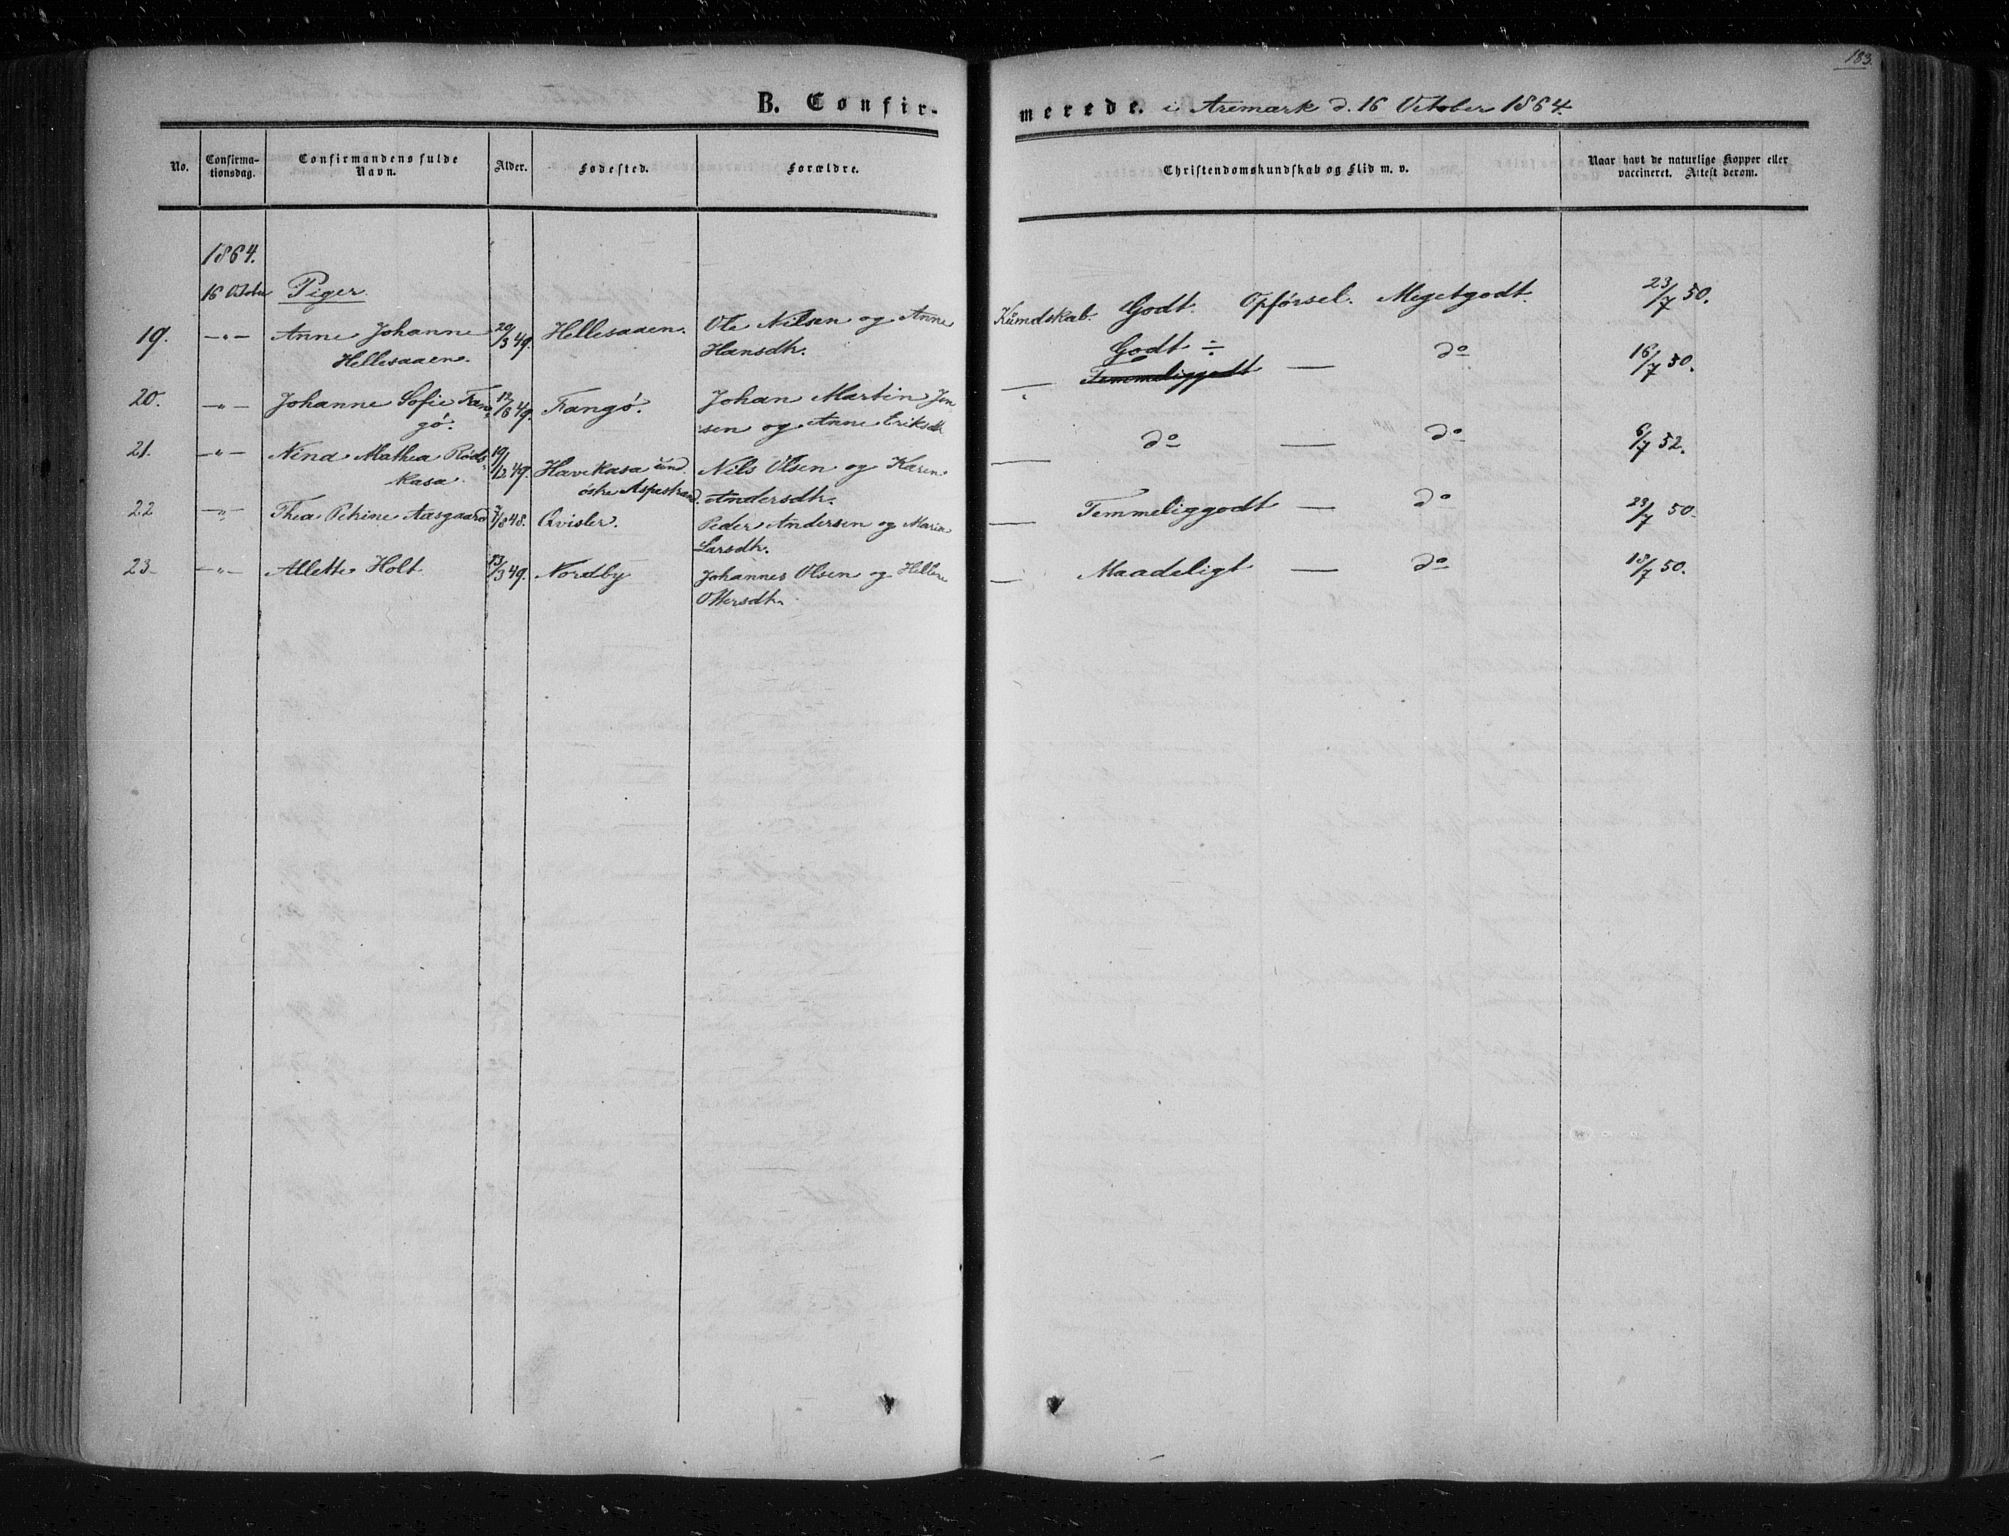 183.
B. Confirmerede. i Aremark d. 16 October 1864.
No. Confirmationsdag. Confirmandens fulde Navn. Alder. Fødested. Forældre. Christendomskundskab og Flid m. v. Naar havt de naturlige Kopper eller vaccineret. Attest derom.
1864.
16 October Piger.
19. — " — Anne Johanne Hellesaaen. 20/3 49. Hellesaaen. Ole Nilsen og Anne Hansdtr. Kundskab. Godt. Opførsel. Megetgodt. 23/7 50.
20. — " — Johanne Sofie Fangø. 12/8 49. Fangø. Johan Martin Jensen og Anne Eriksdtr — Godt ÷ Temmeliggodt — do 16/7 50.
21. — " — Nina Mathea Rødskasa. 19/12 49. Havekasa und. østre Aspestrand. Nils Olsen og Karen Andersdtr. — do — do 6/7 52.
22 — " — Thea Petrine Aasgaard 7/8 48. Qvisler. Peder Andersen og Maria Larsdtr. — Temmeliggodt — do 23/7 50.
23 — " — Allette Holt 13/3 49. Nordby Johannes Olsen og Hellene Ottersdtr. — Maadeligt — do 18/7 50.